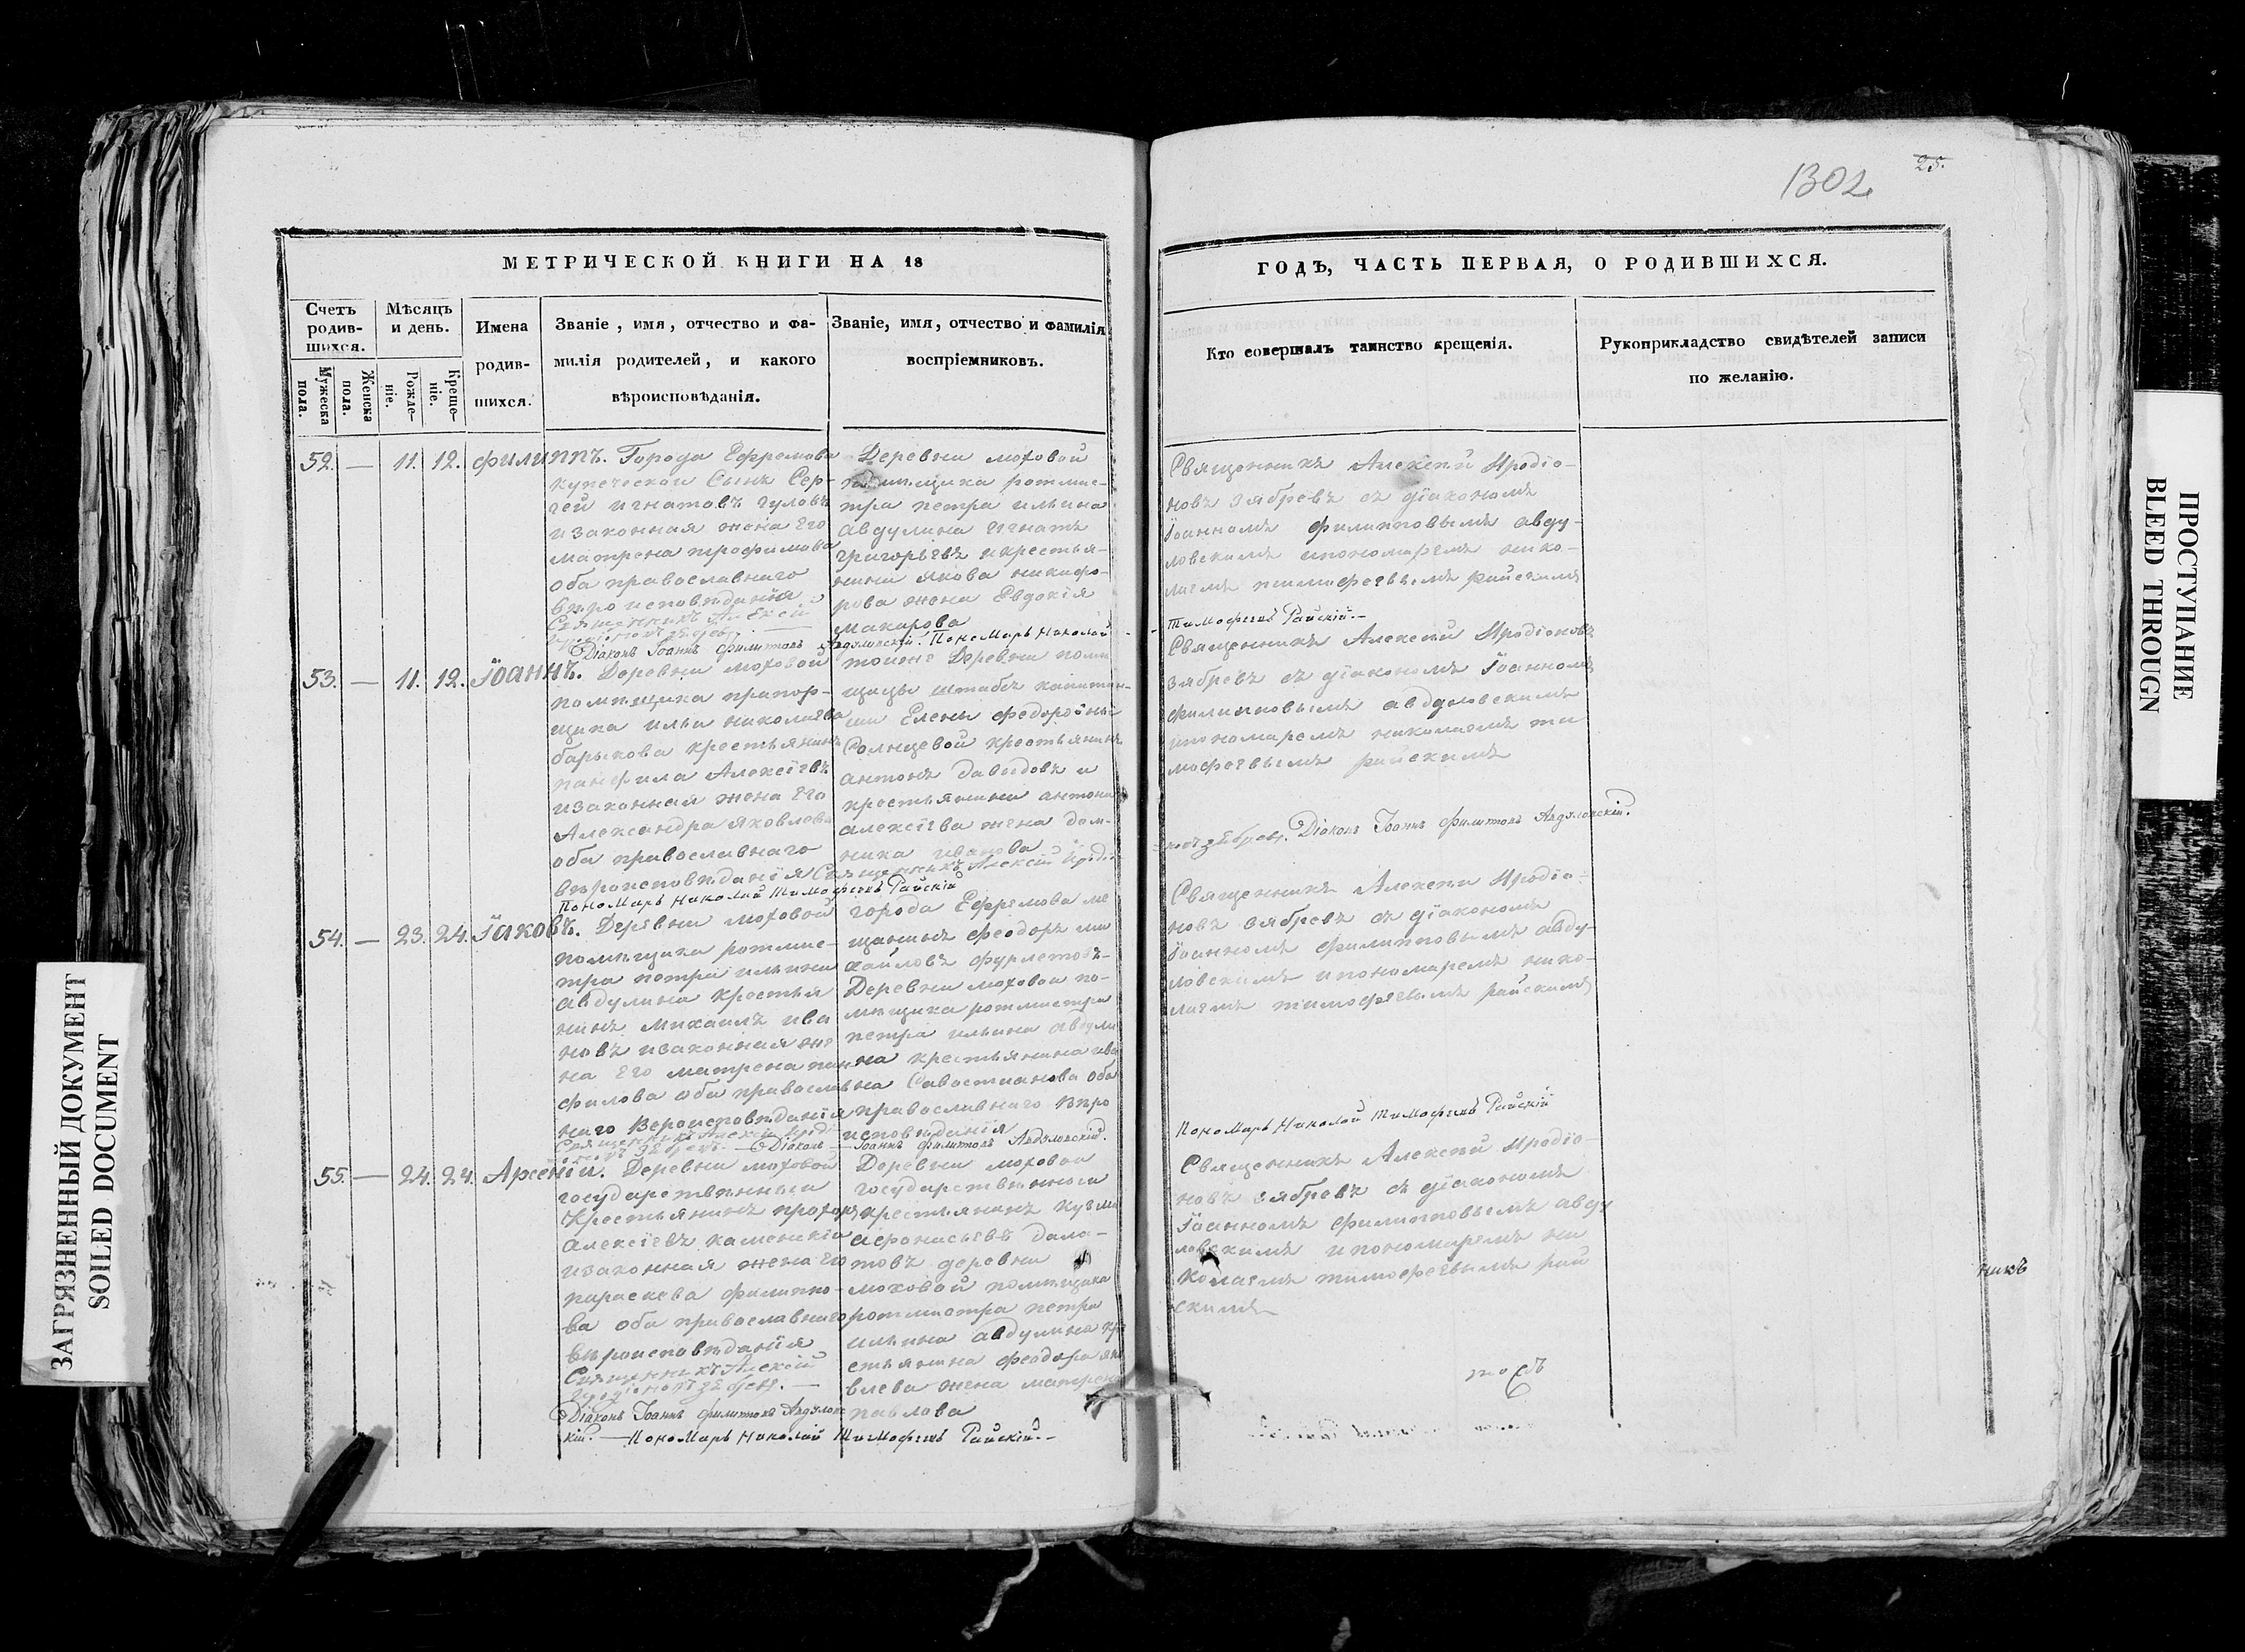 1302
25.
МЕТРИЧЕСКОЙ КНИГИ НА 18
ГОДЪ, ЧАСТЬ ПЕРВАЯ, О РОДИВШИХСЯ.
Счетъ родив-шихся.
Мужеска пола.
Женска пола.
Мѣсяцъ и день.
Рожде-ніе.
Креще-ніе.
Имена родив-шихся.
Званіе, имя, отчество и фа-
милія родителей, и какого
вѣроисповѣданія.
Званіе, имя, отчество и фамилія
воспріемниковъ.
Кто совершалъ таинство крещенія.
Рукоприкладство свидѣтелей записи
по желанію.
52. — 11. 12. Филиппъ.
Города Ефремова
купеческой Сынъ Сер-
гей игнатовъ гуловъ
изаконная жена Его
матрена трофимова
оба православнаго
Вѣроисповѣданія
Священникъ Алексій
Діаконъ Іоаннъ Филиповъ Авдуловскій. Пономарь Николай
Деревни моховой
помѣщика ротмис-
тра петра ильина
Авдулина Игнатъ
григорьевъ икрестья-
нина якова никифо-
рова жена Евдокія
макарова
Священникъ Алексѣй Иродіо-
новъ зябревъ съ діакономъ
Іоанномъ филипповымъ авду-
ловскимъ ипономаремъ нико-
лаемъ тимофеевымъ райскимъ
Тимофеевъ Райскій.—
53. — 11. 12. Іоаннъ.
Деревни моховой
помѣщика прапор-
щика ильи николаева
барыкова крестьянинъ
панфилъ Алексіевъ
изаконная жена Его
Александра яковлева
оба православнаго
вѣроисповѣданія Священникъ Алексій Иродіо-
Пономарь Николай Тимофеевъ Райскій
тойже Деревни помѣ
щицы штабсъ капитан-
ши Елены федоровны
Солнцевой крестьянинъ
антонъ давыдовъ и
крестьянина антона
алексіева жена дом-
ника иванова
Священникъ Алексѣй Иродіоновъ
зябревъ съ діакономъ Іоанномъ
филипповымъ авдуловскимъ
ипономаремъ николаемъ ти
мофеевымъ райскимъ
новъ зябревъ. Діаконъ Іоаннъ Филиповъ Авдуловскій.
54. — 23. 24. Іаковъ.
Деревни моховой
помѣщика ротмис-
тра петра ильина
авдулина крестья
нинъ михаилъ ива
новъ изаконная же
на Его матрена пан
филова оба православ
наго Вѣроисповѣданія
Священникъ Алексій Иродіо
новъ зябревъ. — Діаконъ Іоаннъ Филиповъ Авдуловскій.
города Ефремова мѣ
щанинъ феодоръ ми
хайловъ
Деревни моховой по-
мѣщика ротмистра
петра ильина авдули
на крестьянина ива
на Савостианова оба
православнаго вѣро
исповѣданія
Священникъ Алексѣй Иродіо-
новъ зябревъ съ діакономъ
Іоанномъ филипповымъ авду-
ловскимъ ипономаремъ нико-
лаемъ тимофеевымъ райскимъ
Пономарь Николай Тимофеевъ Райскій
55. — 24. 24. Арсеній.
Деревни моховой
государственный
Крестьянинъ прохоръ
алексіевъ каменскій
изаконная жена Его
параскева филиппо-
ва оба православнаго
вѣроисповѣданія
Священникъ Алексій
Иродіоновъ зябревъ. —
Діаконъ Іоаннъ Филиповъ Авдуловс
кій. — Пономарь Николай Тимофеевъ Райскій. —
Деревни моховой
государственной
крестьянинъ кузма
афонасьевъ дола-
товъ деревни
моховой помѣщика
ротмистра петра
ильина авдулина кре
стьянина феодора яко
влева жена матрена
павлова
Священникъ Алексѣй Иродіо-
новъ зябревъ съ діакономъ
Іоанномъ филипповымъ авду
ловскимъ ипономаремъ ни
колаемъ тимофеевымъ рай
скимъ
никъ
ЗАГРЯЗНЕННЫЙ ДОКУМЕНТ
SOILED DOCUMENT
ПРОСТУПАНИЕ
BLEED THROUGN